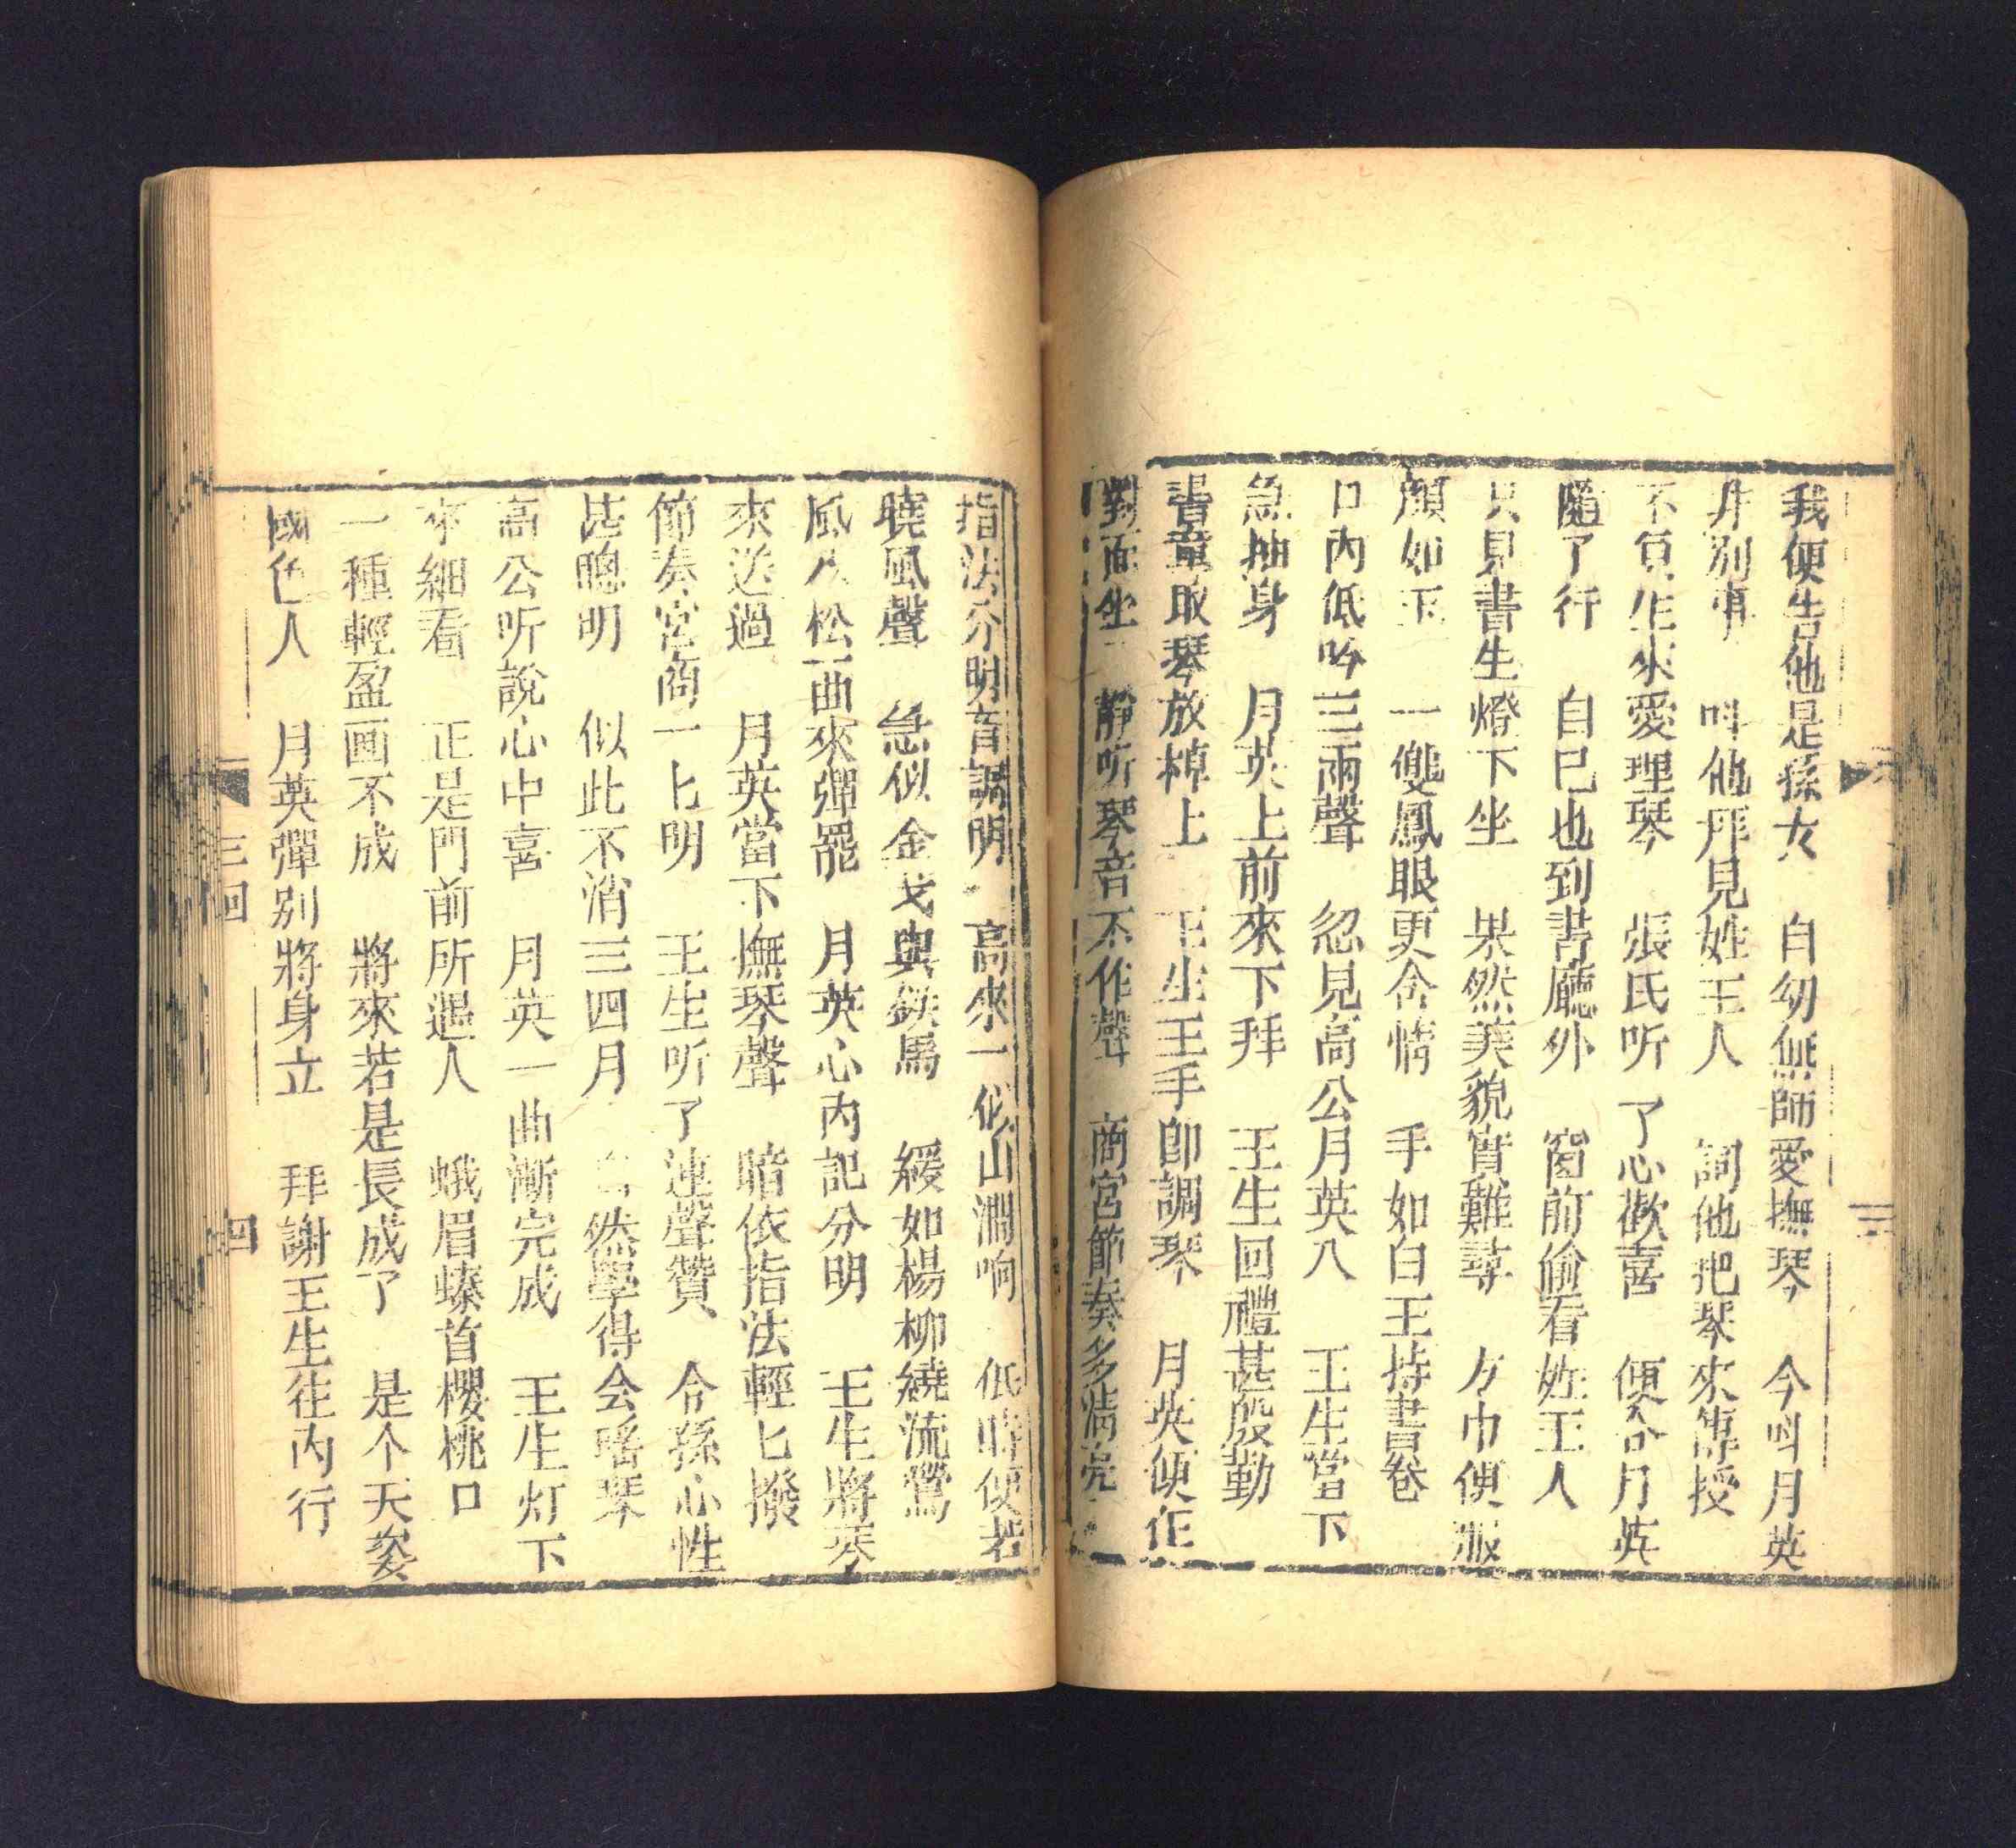 我便告他是孫女　自幼無師愛撫琴　今叫月英
非別事　叫他拜見姓王人　詞他把琴來傳授
不負生來愛理琴　張氏听了心歡喜　便令月英
隨了行　自巳也到書廳外　窗前偷看姓王人
只見書生燈下坐　果然美貌實難尋　方巾便服
顏如玉　一雙鳳眼更含情　手如白玉持書卷
口內低吟三兩聲　忽見高公月英入　王生當下
急抽身　月英上前來下拜　王生回禮甚殷勤
書童取琴放棹上　王生玉手即調琴　月英便在
對面坐　靜听琴音不作聲　商宮節奏多清亮
指法分明音調明　高來一似山澗响　低時便若
曉風聲　急似金戈與鉄馬　緩如楊柳繞流鶯
風入松一曲來彈罷　月英心內記分明　王生將琴
來送過　月英當下撫琴聲　暗依指法輕匕撥
節奏宮商一匕明　王生听了連聲贊　令孫心性
甚聰明　似此不消三四月　自然學得会瑤琴
高公听說心中喜　月英一曲漸完成　王生灯下
來細看　正是門前所遇人　蛾眉螓首櫻桃口
一種輕盈画不成　將來若是長成了　是个天姿
國色人　月英彈別將身立　拜謝王生往內行
三回　四